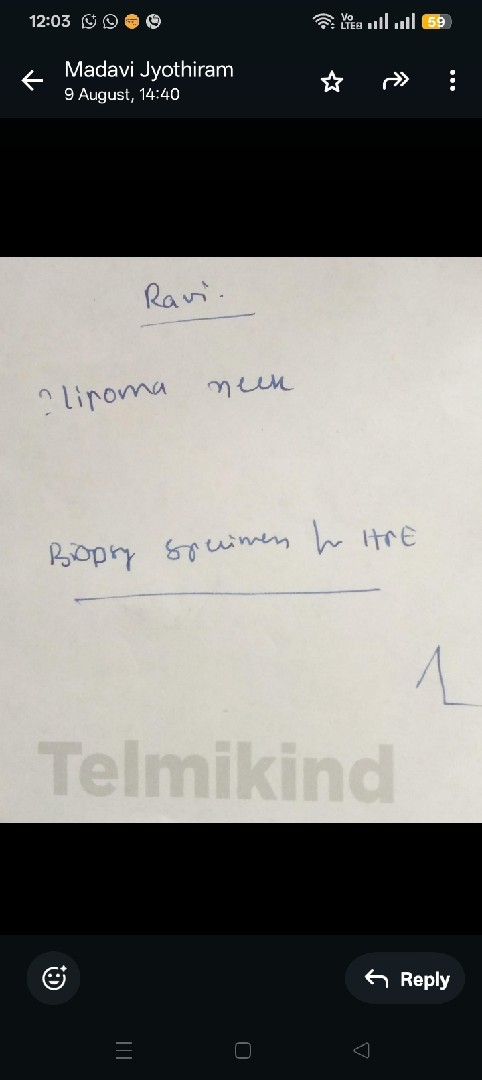 12:03
Vo
LTE2
59
Madavi Jyothiram
9 August, 14:40
Ravi.
? lipoma neck
Biopsy specimen for HPE
Telmikind
Reply